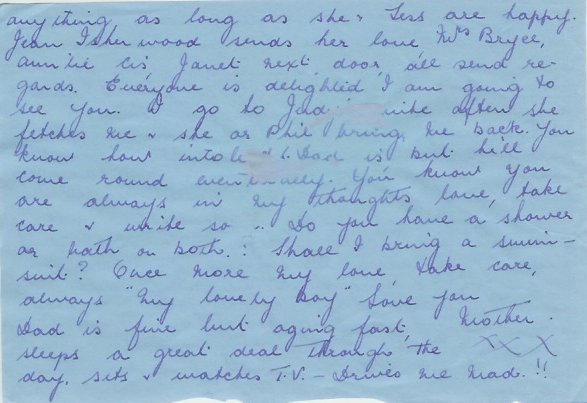 anything, as long as she & Tess are happy.
Jean Isherwood sends her love, Mrs Bryce,
auntie Cis, Janet next door all send re-
gards. Everyone is delighted I am going to
see you. I go to quite often she
fetches me & she or Phil brings me back. You
know how Dad is but he'll
come round eventually. You know you
are always in my thoughts, love, take
care & write so .. Do you have a shower
or bath or both. : Shall I bring a swim-
suit? Once more my love, take care,
always "my lovely boy" Love you
Dad is fine but aging fast, Mother.
sleeps a great deal through the XXX
day, sits & watches T.V. – Drives me mad.!!